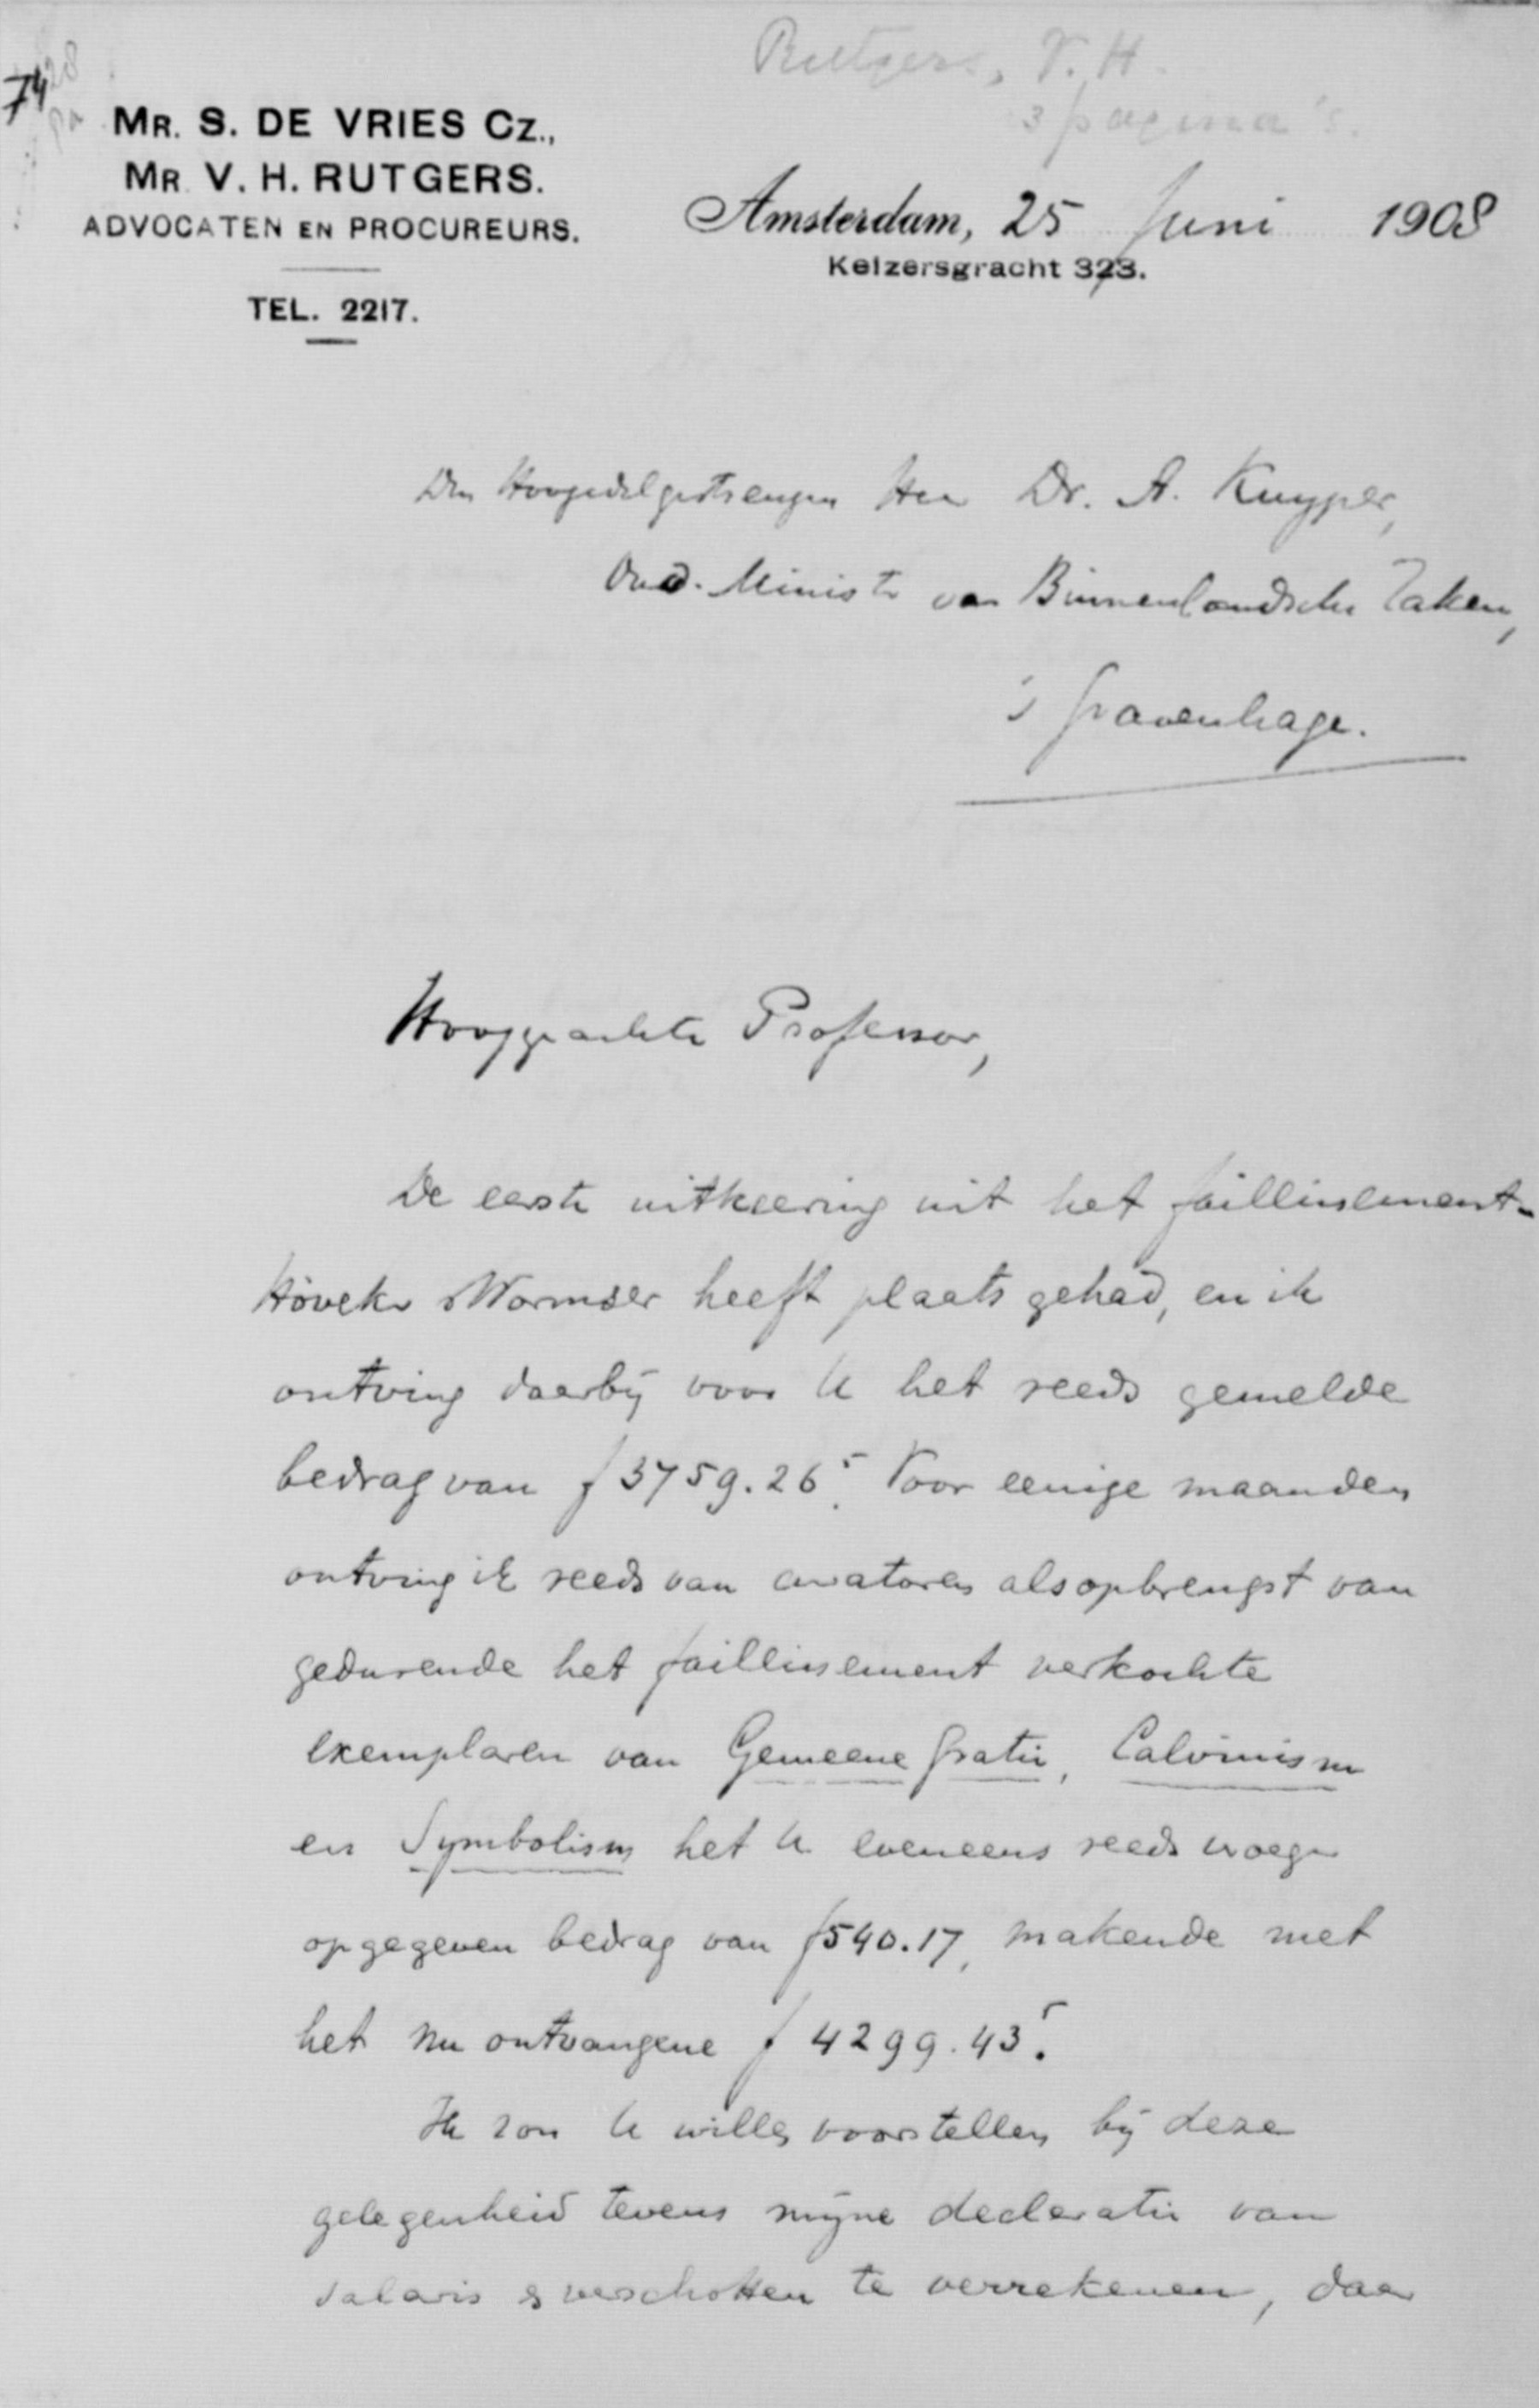 Rutgers, V. H.
3 pagina's.
74
MR. S. DE VRIES CZ.,
MR. V. H. RUTGERS.
ADVOCATEN EN PROCUREURS.
TEL. 2217.
Amsterdam, 25 Juni 1908
Keizersgracht 323.
Den Hoogedelgestrengen Heer Dr. A. Kuyper,
Oud-Minister van Binnenlandsche Zaken,
's Gravenhage.
Hooggeachte Professor,
De eerste uitkeering uit het faillissement-
Höveker & Wormser heeft plaats gehad, en ik
ontving daarbij voor U het reeds gemelde
bedrag van f 3759.26⁵. Voor eenige maanden
ontving ik reeds van curatoren als opbrengst van
gedurende het faillissement verkochte
exemplaren van Gemeene Gratie, Calvinism
en Symbolism het U eveneens reeds vroeger
opgegeven bedrag van f 540.17, makende met
het nu ontvangene f 4299.43⁵.
Ik zou U willen voorstellen bij deze
gelegenheid tevens mijne declaratie van
salaris & verschotten te verrekenen, daar